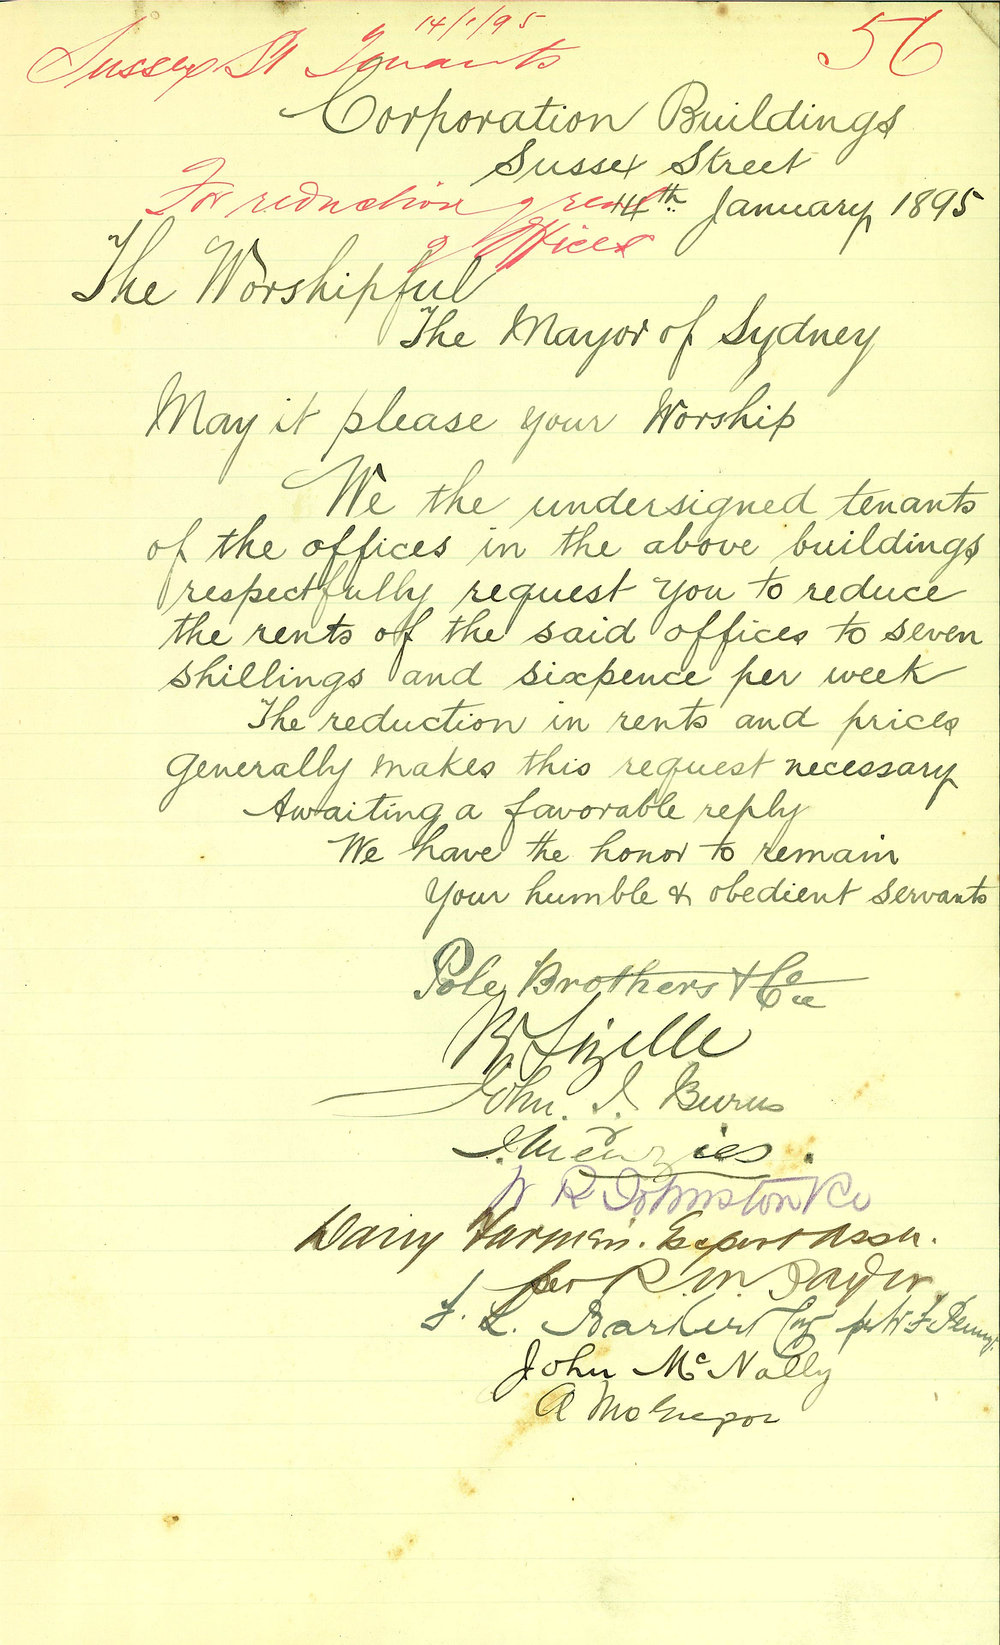 14/1/95
56
Sussex St Tenants
Corporation Buildings
Sussex Street
For reduction of rent
14th January 1895
of Offices
The Worshipful
The Mayor of Sydney
May it please your Worship
We the undersigned tenants
of the offices in the above buildings
respectfully request you to reduce
the rents of the said offices to seven
shillings and sixpence per week
The reduction in rents and prices
generally makes this request necessary
Awaiting a favorable reply
We have the honor to remain
Your humble & obedient servants
Pole Brothers & Co
Lizelle
John. J. Burns
J. Menzies.
W R Johnston & Co
Dairy Farmers. Export Assn.
per R. M.
F. L. Barker
John McNally
A McGregor